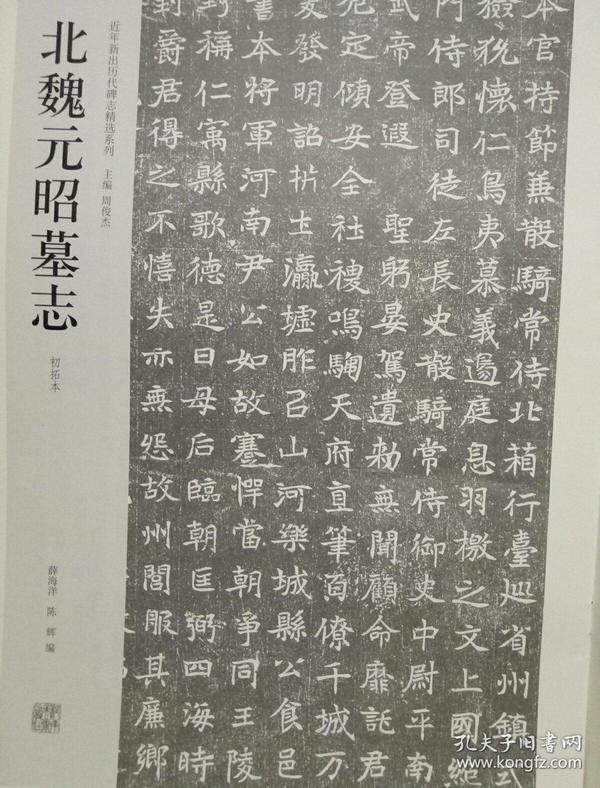 近年新出历代碑志精选系列 主编 周俊杰
北魏元昭墓志
初拓本
薛海洋 陈辉 编
本官持節兼散騎常侍北葙行臺巡省州鎮式
撿猃懷仁鳥夷慕義邊庭息羽檄之文上國絕
門侍郎司徒左長史散騎常侍御史中尉平南
武帝登遐 聖躬晏駕遺勑無聞顧命靡託君
危定傾安全社稷鳴騶天府直筆百僚千城万
爰發明詔析土瀛墟胙召山河樂城縣公食邑
書本將軍河南尹公如故蹇愕當朝爭同王陵
封稱仁寓縣歌德是日母后臨朝匡弼四海時
封爵君得之不憘失亦無怨故州閭服其廉鄉
孔夫子旧书网
www.kongfz.com